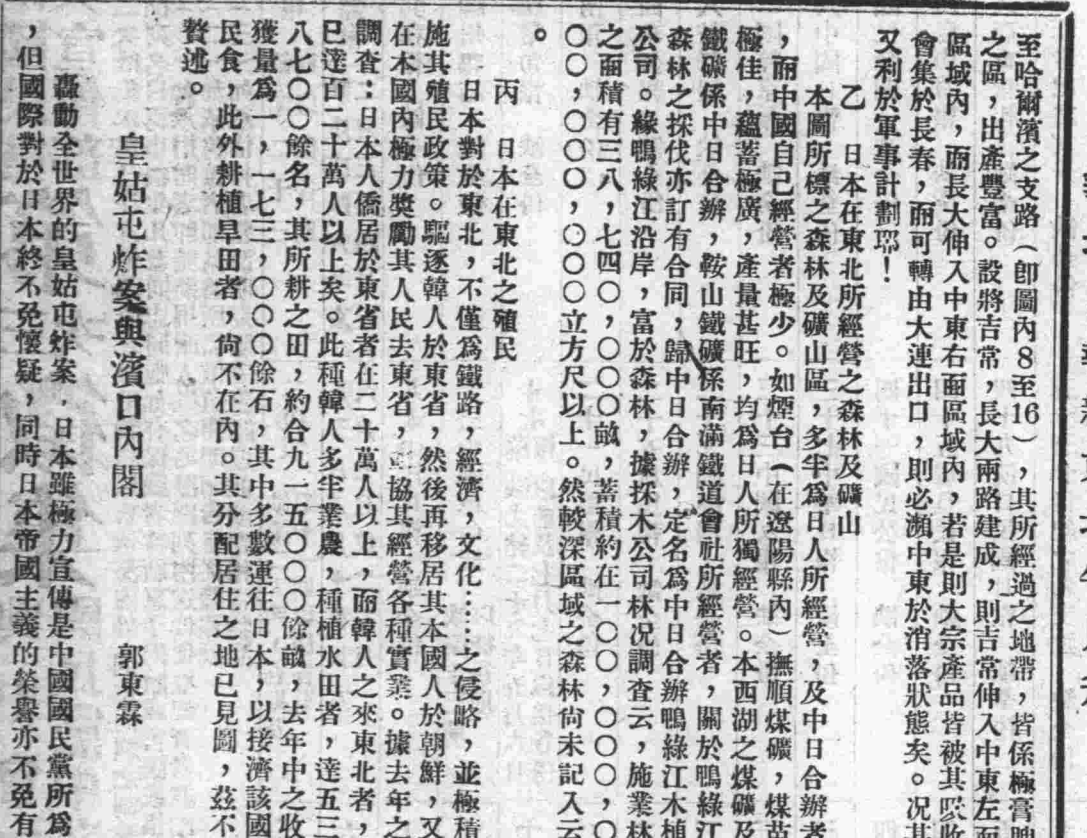 至哈爾濱之支路(卽圖內8至16),其所經過之地帶,皆係極膏
之區,出產豐富。設將吉常,長大兩路建成,則吉常伸入中東左
區域內,而長大伸入中東右面區域內,若是則大宗產品皆被其吸收
會集於長春,而可轉由大連出口,則必瀕中東於消落狀態矣。况其
又利於軍事計劃耶!
乙 日本在東北所經營之森林及礦山
本圖所標之森林及礦山區,多半爲日人所經營,及中日合辦者
,而中國自己經營者極少。如煙台(在遼陽縣內)撫順煤礦,煤苗
極佳,蘊蓄極廣,產量甚旺,均爲日人所獨經營。本西湖之煤礦及
鐵礦係中日合辦,鞍山鐵礦係南滿鐵道會社所經營者,關於鴨綠江
森林之採伐亦訂有合同,歸中日合辦,定名爲中日合辦鴨綠江木植
公司。緣鴨綠江沿岸,富於森林,據採木公司林况調查云,施業林
之面積有三八,七四〇,〇〇〇畝,蓄積約在一〇〇,〇〇〇,〇
〇〇,〇〇〇,〇〇〇立方尺以上。然較深區域之森林尙未記入云
。
丙 日本在東北之殖民
日本對於東北,不僅爲鐵路,經濟,文化……之侵略,並極積
施其殖民政策。驅逐韓人於東省,然後再移居其本國人於朝鮮,又
在本國內極力獎勵其人民去東省,並協其經營各種實業。據去年之
調查:日本人僑居於東省者在二十萬人以上,而韓人之來東北者,
已達百二十萬人以上矣。此種韓人多半業農,種植水田者,達五三
八七〇〇餘名,其所耕之田,約合九一五〇〇〇餘畝,去年中之收
獲量爲一,一七三,〇〇〇餘石,其中多數運往日本,以接濟該國
民食,此外耕植旱田者,尙不在內。其分配居住之地已見圖,茲不
贅述。
皇姑屯炸案與濱口內閣 郭東霖
轟動全世界的皇姑屯炸案,日本雖極力宣傳是中國國民黨所爲
,但國際對於日本終不免懷疑,同時日本帝國主義的榮譽亦不免有